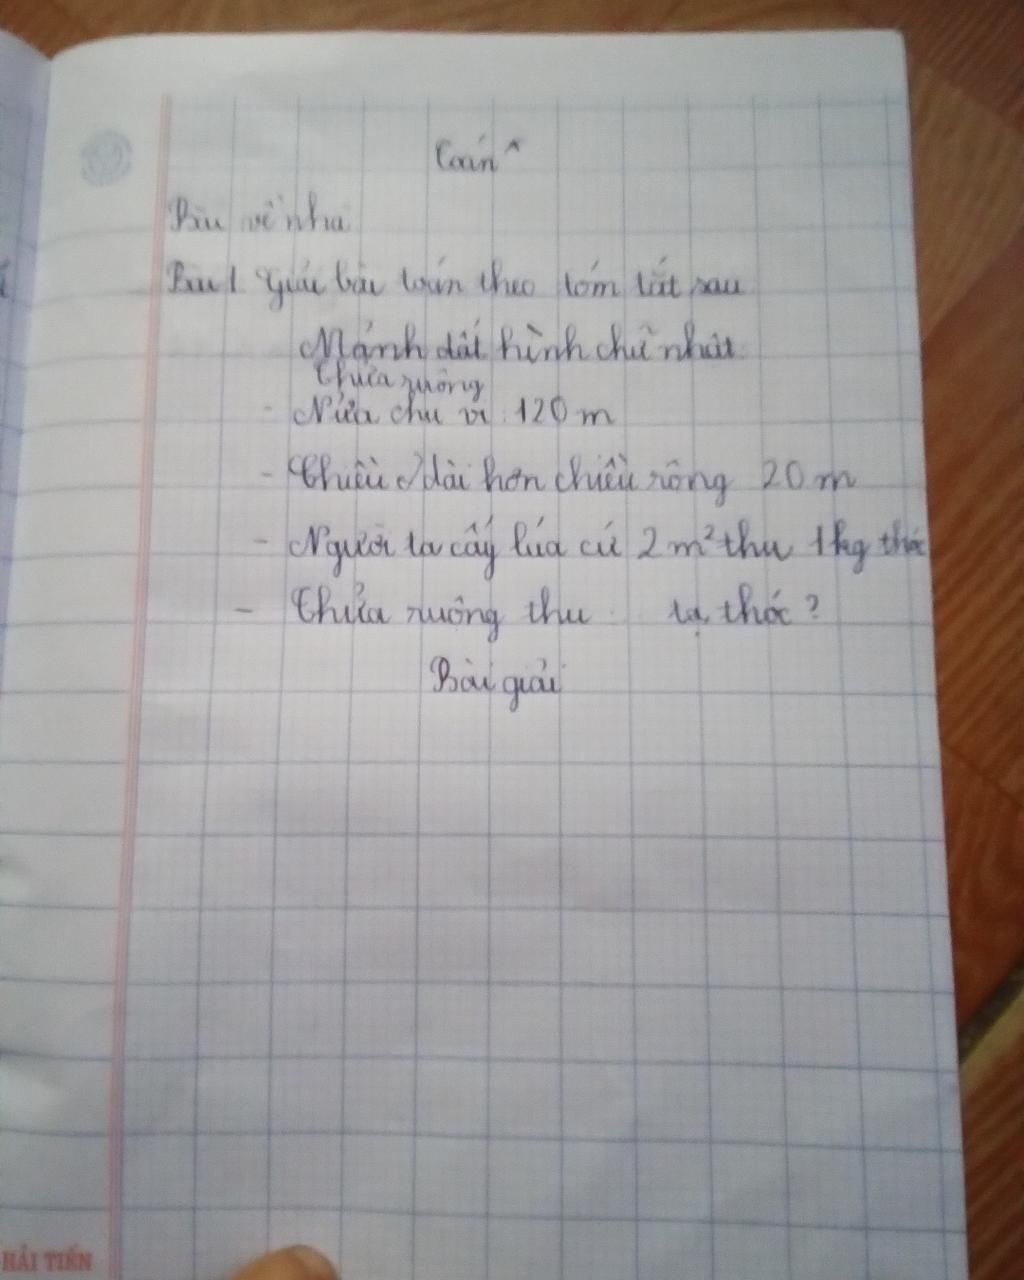 Toán
Bài về nhà
Bài 1 Giải bài toán theo tóm tắt sau
Mảnh đất hình chữ nhật
Thửa ruộng
- Nửa chu vi 120 m
- Chiều dài hơn chiều rộng 20 m
- Người ta cấy lúa cứ 2 m² thu 1 kg thóc
- Thửa ruộng thu tạ thóc?
Bài giải
HẢI TIẾN